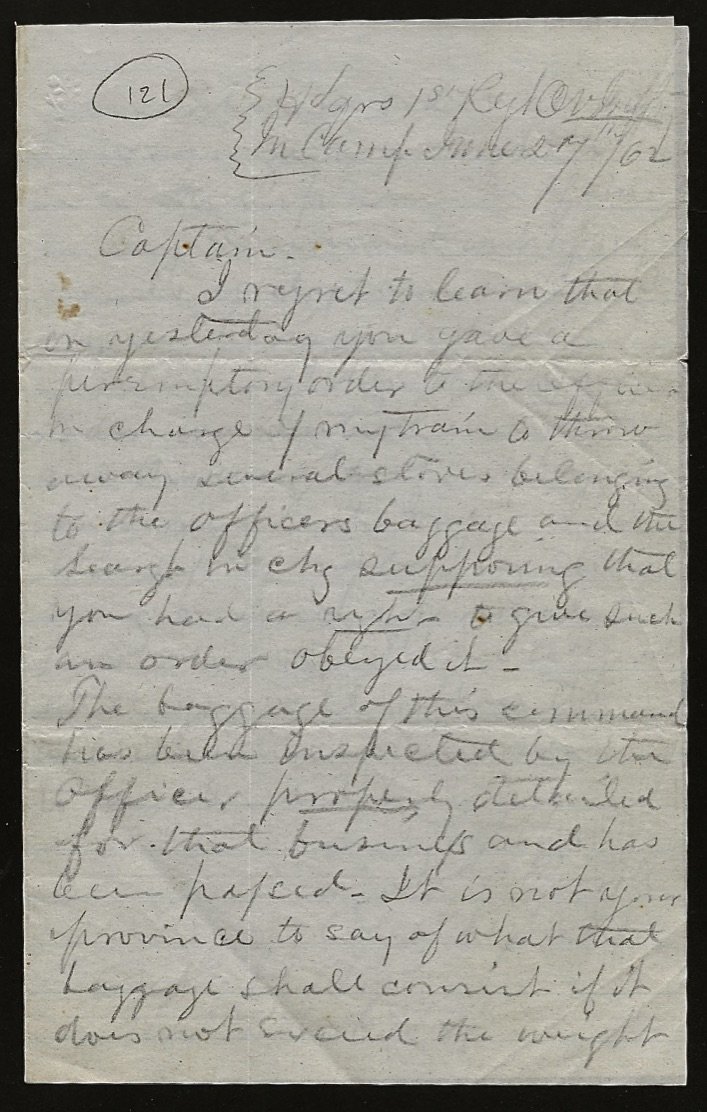 121
Hdqrs 1st Regt
In Camp June 27th /62
Captain.
I regret to learn that
on yesterday you gave a
perremptory order to the officer
in charge of my train to throw
away several stoves belonging
to the officers baggage and the
Seargt in chg supposing that
you had a right to give such
an order obeyed it -
The baggage of this command
has been inspected by the
Officer properly detailed
for that business and has
been passed - It is not your
province to say of what that
baggage shall consist if it
does not exceed the weight